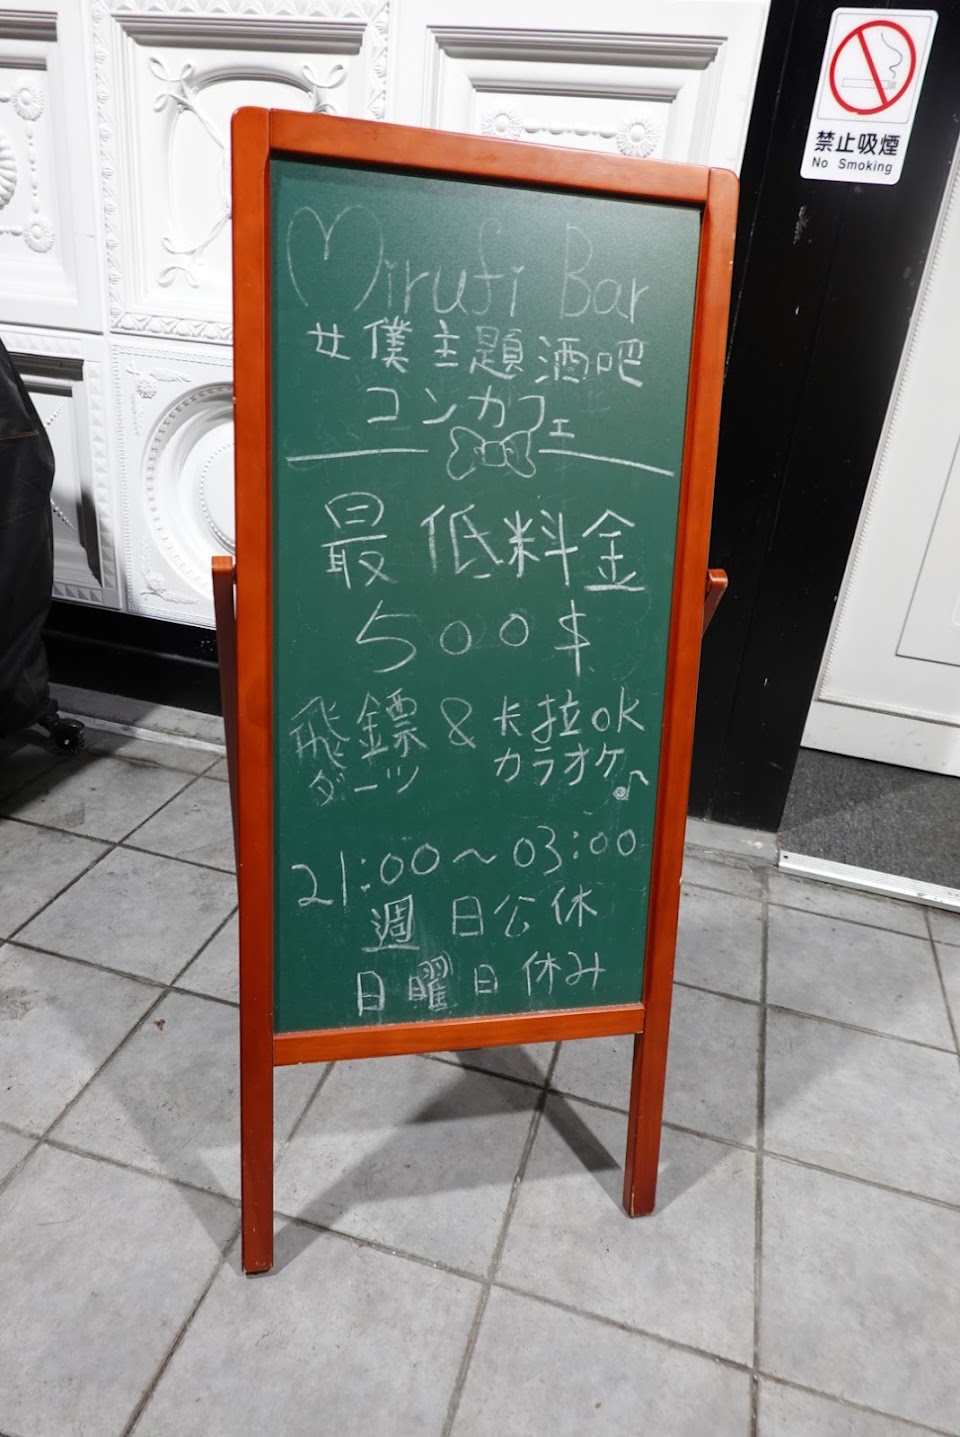 禁止吸煙
No Smoking
Mirufi Bar
女僕主題酒吧
コンカフェ
最低料金
500$
飛鏢 & 卡拉OK
ダーツ カラオケ♪
21:00~03:00
週日公休
日曜日休み